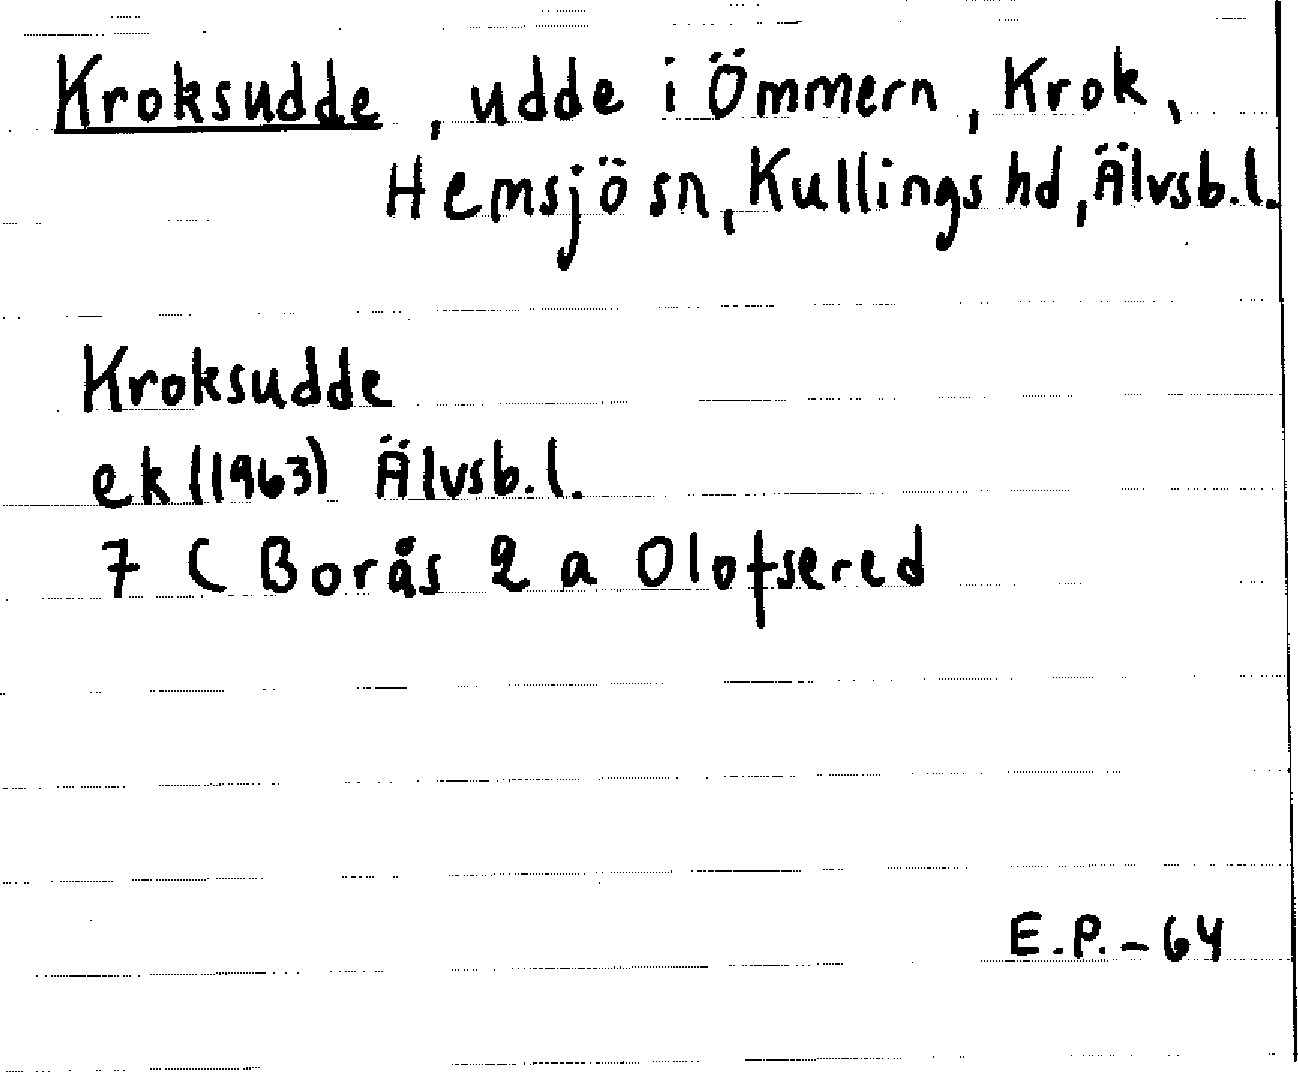 Kroksudde, udde i Ömmern, Krok,
Hemsjö sn, Kullings hd, Älvsb.l.
Kroksudde
ek (1963) Älvsb.l.
7 C Borås 2 a Olofsered
E.P.-64